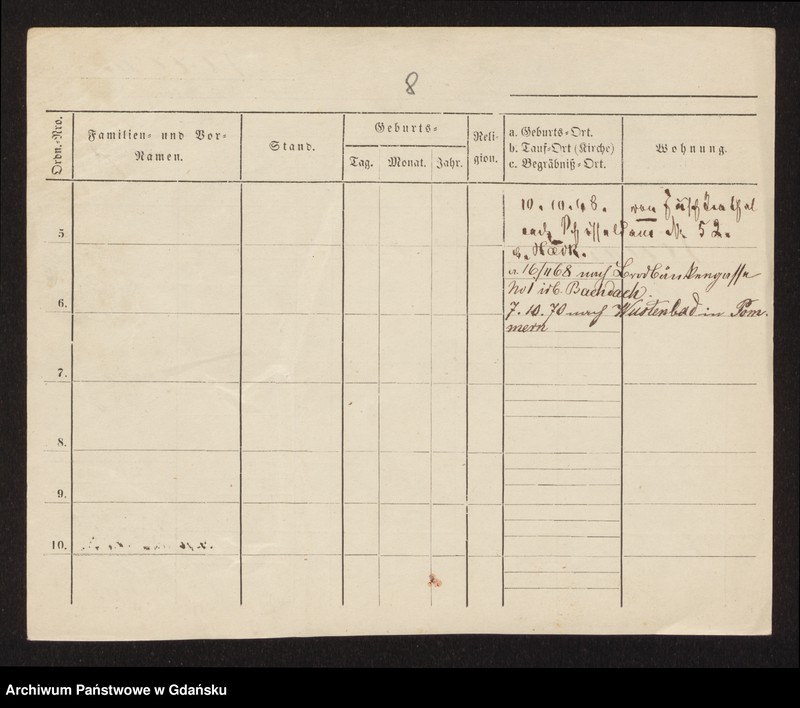 8
Ordn.-Nro.
Familien- und Vor-
Namen.
Stand.
Geburts-
Tag.
Monat.
Jahr.
Reli-
gion.
a. Geburts-Ort.
b. Tauf-Ort (Kirche)
c. Begräbniß-Ort.
Wohnung.
5
10. 10. 68. von
nach No 52.
a. 16/11 68 nach Brodbänkengasse
No 1 isb. Bachdach.
7. 10. 70 nach Wustenbad in Pom-
mern
6.
7.
8.
9.
10.
Archiwum Państwowe w Gdańsku